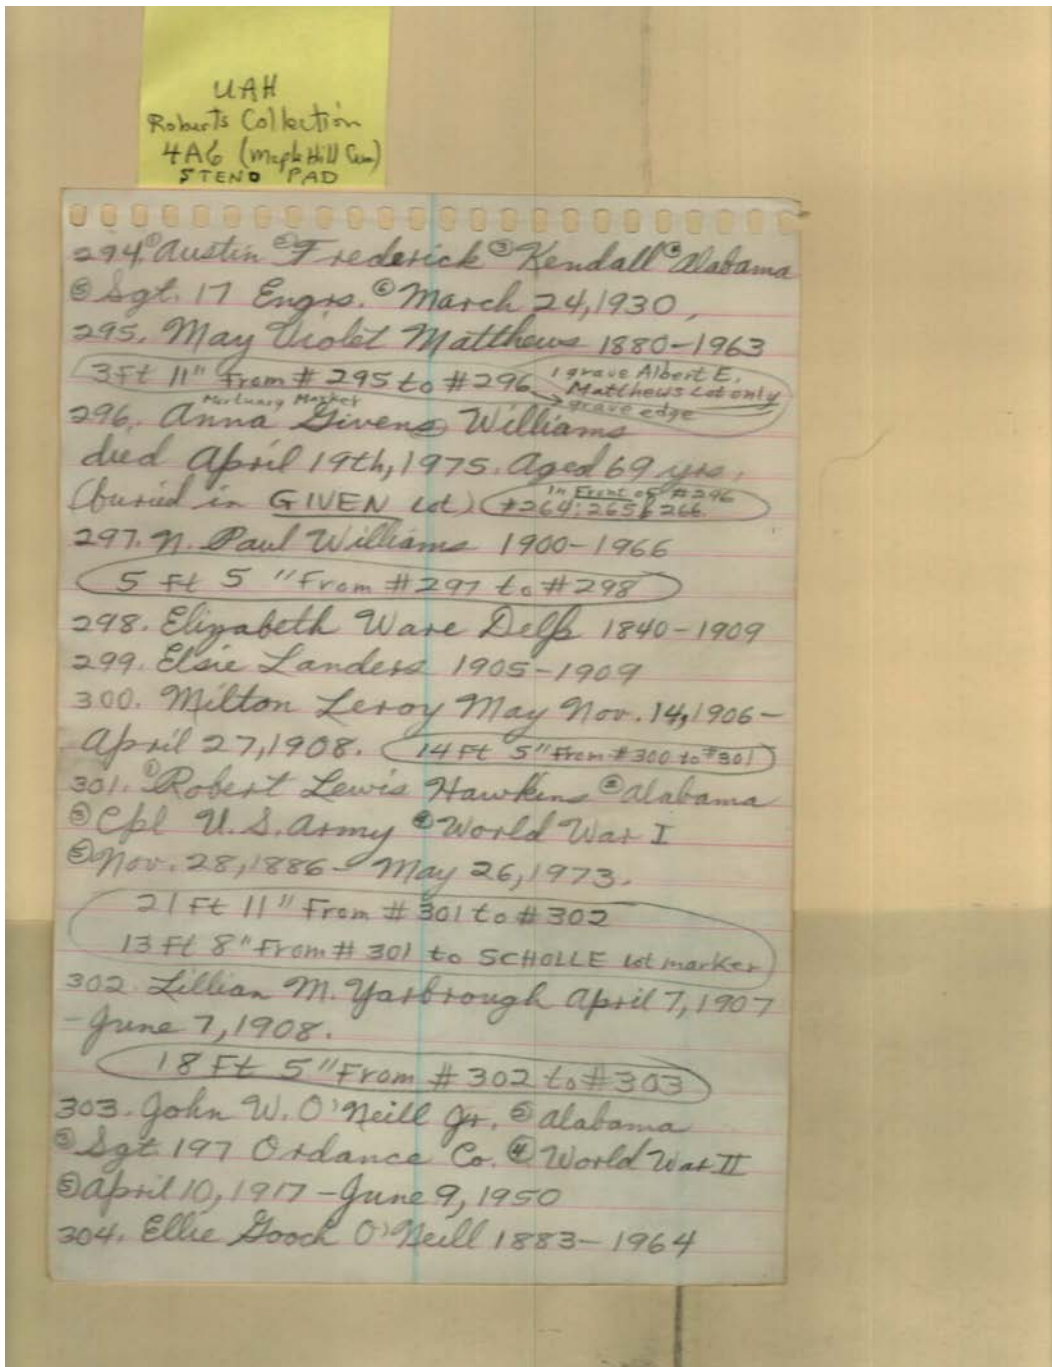 UAH
Roberts Collection
4A6 (Maple Hill Cem)
STENO PAD
294. ① Austin ② Frederick ③ Kendall ④ Alabama
⑤ Sgt. 17 Engrs. ⑥ March 24, 1930,
295. May Violet Matthews 1880-1963
3 Ft 11" From # 295 to # 296
1 grave Albert E.
Matthews Lot only
grave edge
Mortuary Marker
296. Anna Givens Williams
died April 19th, 1975. Aged 69 yrs.
(buried in GIVEN Lot)
In Front of #296
#264; 265 & 266
297. N. Paul Williams 1900-1966
5 Ft 5 "From # 297 to # 298
298. Elizabeth Ware Delp 1840-1909
299. Elsie Landers 1905-1909
300. Milton Leroy May Nov. 14, 1906-
April 27, 1908. 14 Ft 5" From # 300 to # 301
301. ① Robert Lewis Hawkins ② Alabama
③ Cpl U.S. Army ④ World War I
⑤ Nov. 28, 1886 - May 26, 1973.
21 Ft 11" From # 301 to # 302
13 Ft 8" From # 301 to SCHOLLE Lot marker
302. Lillian M. Yarbrough April 7, 1907
- June 7, 1908.
18 Ft 5" From # 302 to # 303
303. John W. O'Neill Jr. ② Alabama
③ Sgt 197 Ordance Co. ④ World War II
⑤ April 10, 1917 - June 9, 1950
304. Ellie Gooch O'Neill 1883-1964